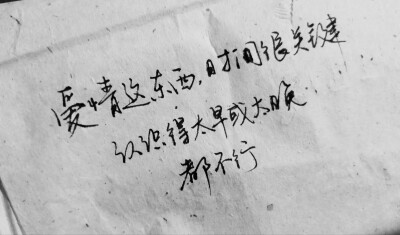 爱情这东西,时间很关键
认识得太早或太晚......
都不行